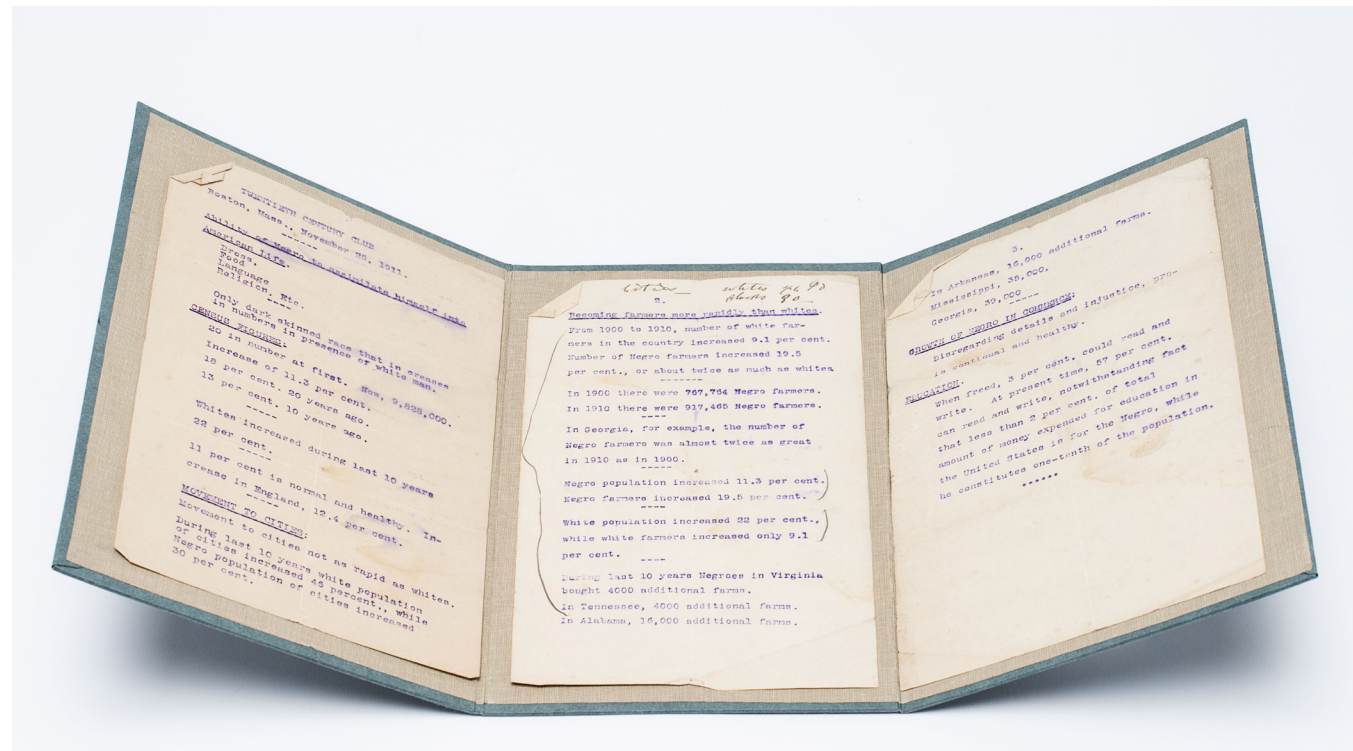 TWENTIETH CENTURY CLUB
Boston, Mass., November 25, 1911.
-----
Ability of Negro to assimilate himself into
American Life.
Dress.
Food
Language
Religion, Etc.
----
Only dark skinned race that in creases
in numbers in presence of white man.
CENSUS FIGURES:
20 in number at first. Now, 9,828,000.
Increase of 11.3 per cent.
18 per cent. 20 years ago.
13 per cent. 10 years ago.
-----
Whites increased during last 10 years
22 per cent.
-----
11 per cent is normal and healthy. In-
crease in England, 12.4 per cent.
-----
MOVEMENT TO CITIES:
Movement to cities not as rapid as whites.
During last 10 years white population
of cities increased 45 percent., while
Negro population of cities increased
30 per cent.
Cities whites
blacks
2.
Becoming farmers more rapidly than whites.
From 1900 to 1910, number of white far-
mers in the country increased 9.1 per cent.
Number of Negro farmers increased 19.5
per cent., or about twice as much as whites
-------
In 1900 there were 767,764 Negro farmers.
In 1910 there were 917,465 Negro farmers.
----
In Georgia, for example, the number of
Negro farmers was almost twice as great
in 1910 as in 1900.
-----
Negro population increased 11.3 per cent.
Negro farmers increased 19.5 per cent.
----
White population increased 22 per cent.,
while white farmers increased only 9.1
per cent.
----
During last 10 years Negroes in Virginia
bought 4000 additional farms.
In Tennessee, 4000 additional farms.
In Alabama, 16,000 additional farms.
3.
In Arkansas, 16,000 additional farms.
Mississippi, 35,000.
Georgia, 39,000
-----
GROWTH OF NEGRO IN COMMERCE:
Disregarding details and injustice, pro-
is continual and healthy.
EDUCATION.
When freed, 3 per cent. could read and
write. At present time, 57 per cent.
can read and write, notwithstanding fact
that less than 2 per cent. of total
amount of money expended for education in
the United States is for the Negro, while
he constitutes one-tenth of the population.
------